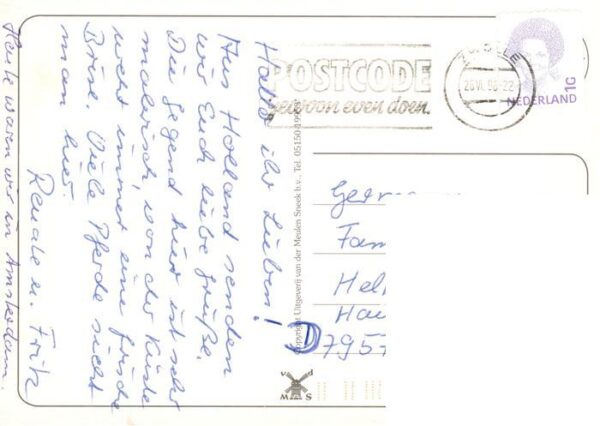 Hallo ihr Lieben!
Aus Holland senden
wir Euch liebe Grüße.
Die Gegend hier ist sehr
malerisch, von der Küste
weht immer eine frische
Brise. Viele Pferde sieht
man hier.
Renate u. Fritz
Heute waren wir in Amsterdam.
POSTCODE
gewoon even doen.
ZWOLLE
NEDERLAND
1G
Copyright Uitgeverij van der Meulen Sneek b.v., Tel. 05150-199
Fam
Hel
Hau
D 7957
v d
M S